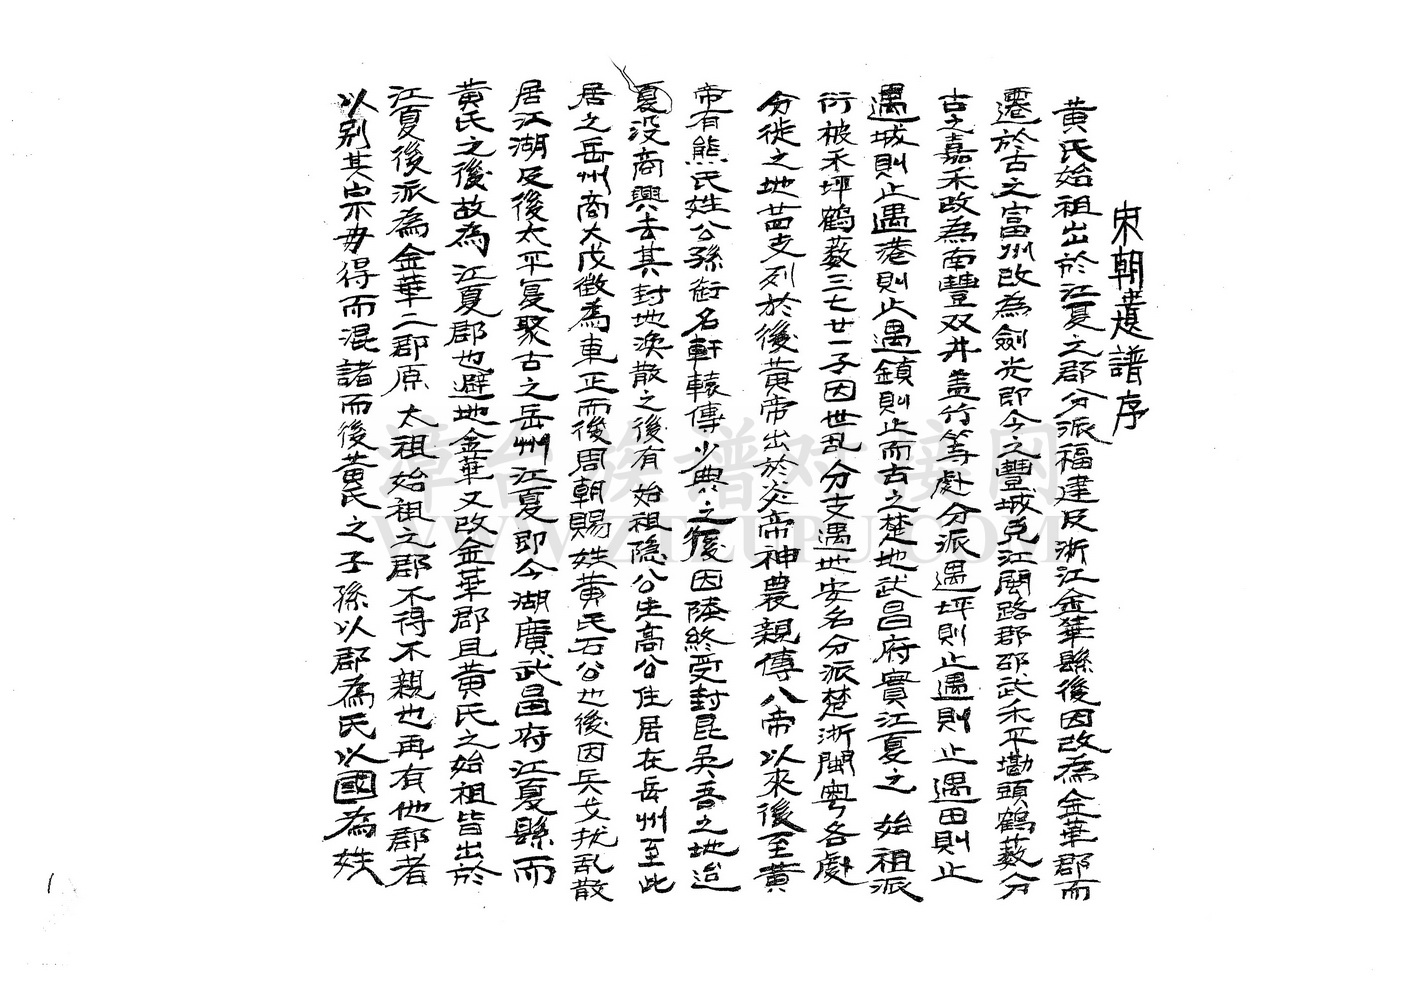 宋朝遺譜序
黃氏始祖出於江夏之郡分派福建及浙江金華縣後因改為金華郡而
遷於古之富州改為劍光即今之豐城克江閩路郡邵武禾平墈頭鶴藪分
古之嘉禾改為南豐双井盖竹等處分派遇坪則止遇則止遇田則止
遇城則止遇港則止遇鎮則止而古之楚地武昌府實江夏之始祖派
衍被禾坪鶴藪三七廿一子因世乱分支遇地安名分派楚浙閩粵各處
分徙之地苗支列於後黃帝出於炎帝神農親傳八帝以來後至黃
帝有熊氏姓公孫衔名軒轅傳少典之後因陸終受封昆吳吾之地迨
夏没商興去其封地渙散之後有始祖隐公生高公住居在岳州至此
居之岳州商大戊徵為車正而後周朝賜姓黃氏石公也後因兵戈扰乱散
居江湖及後太平夏聚古之岳州江夏即今湖廣武昌府江夏縣而
黃氏之後故為江夏郡也避地金華又改金華郡且黃氏之始祖皆出於
江夏後派為金華二郡原太祖始祖之郡不得不親也再有他郡者
以别其宗毋得而混諸而後黃氏之子孫以郡為氏以國為姓
1
潭台族谱对接网
WWW.ZTZUPU.COM